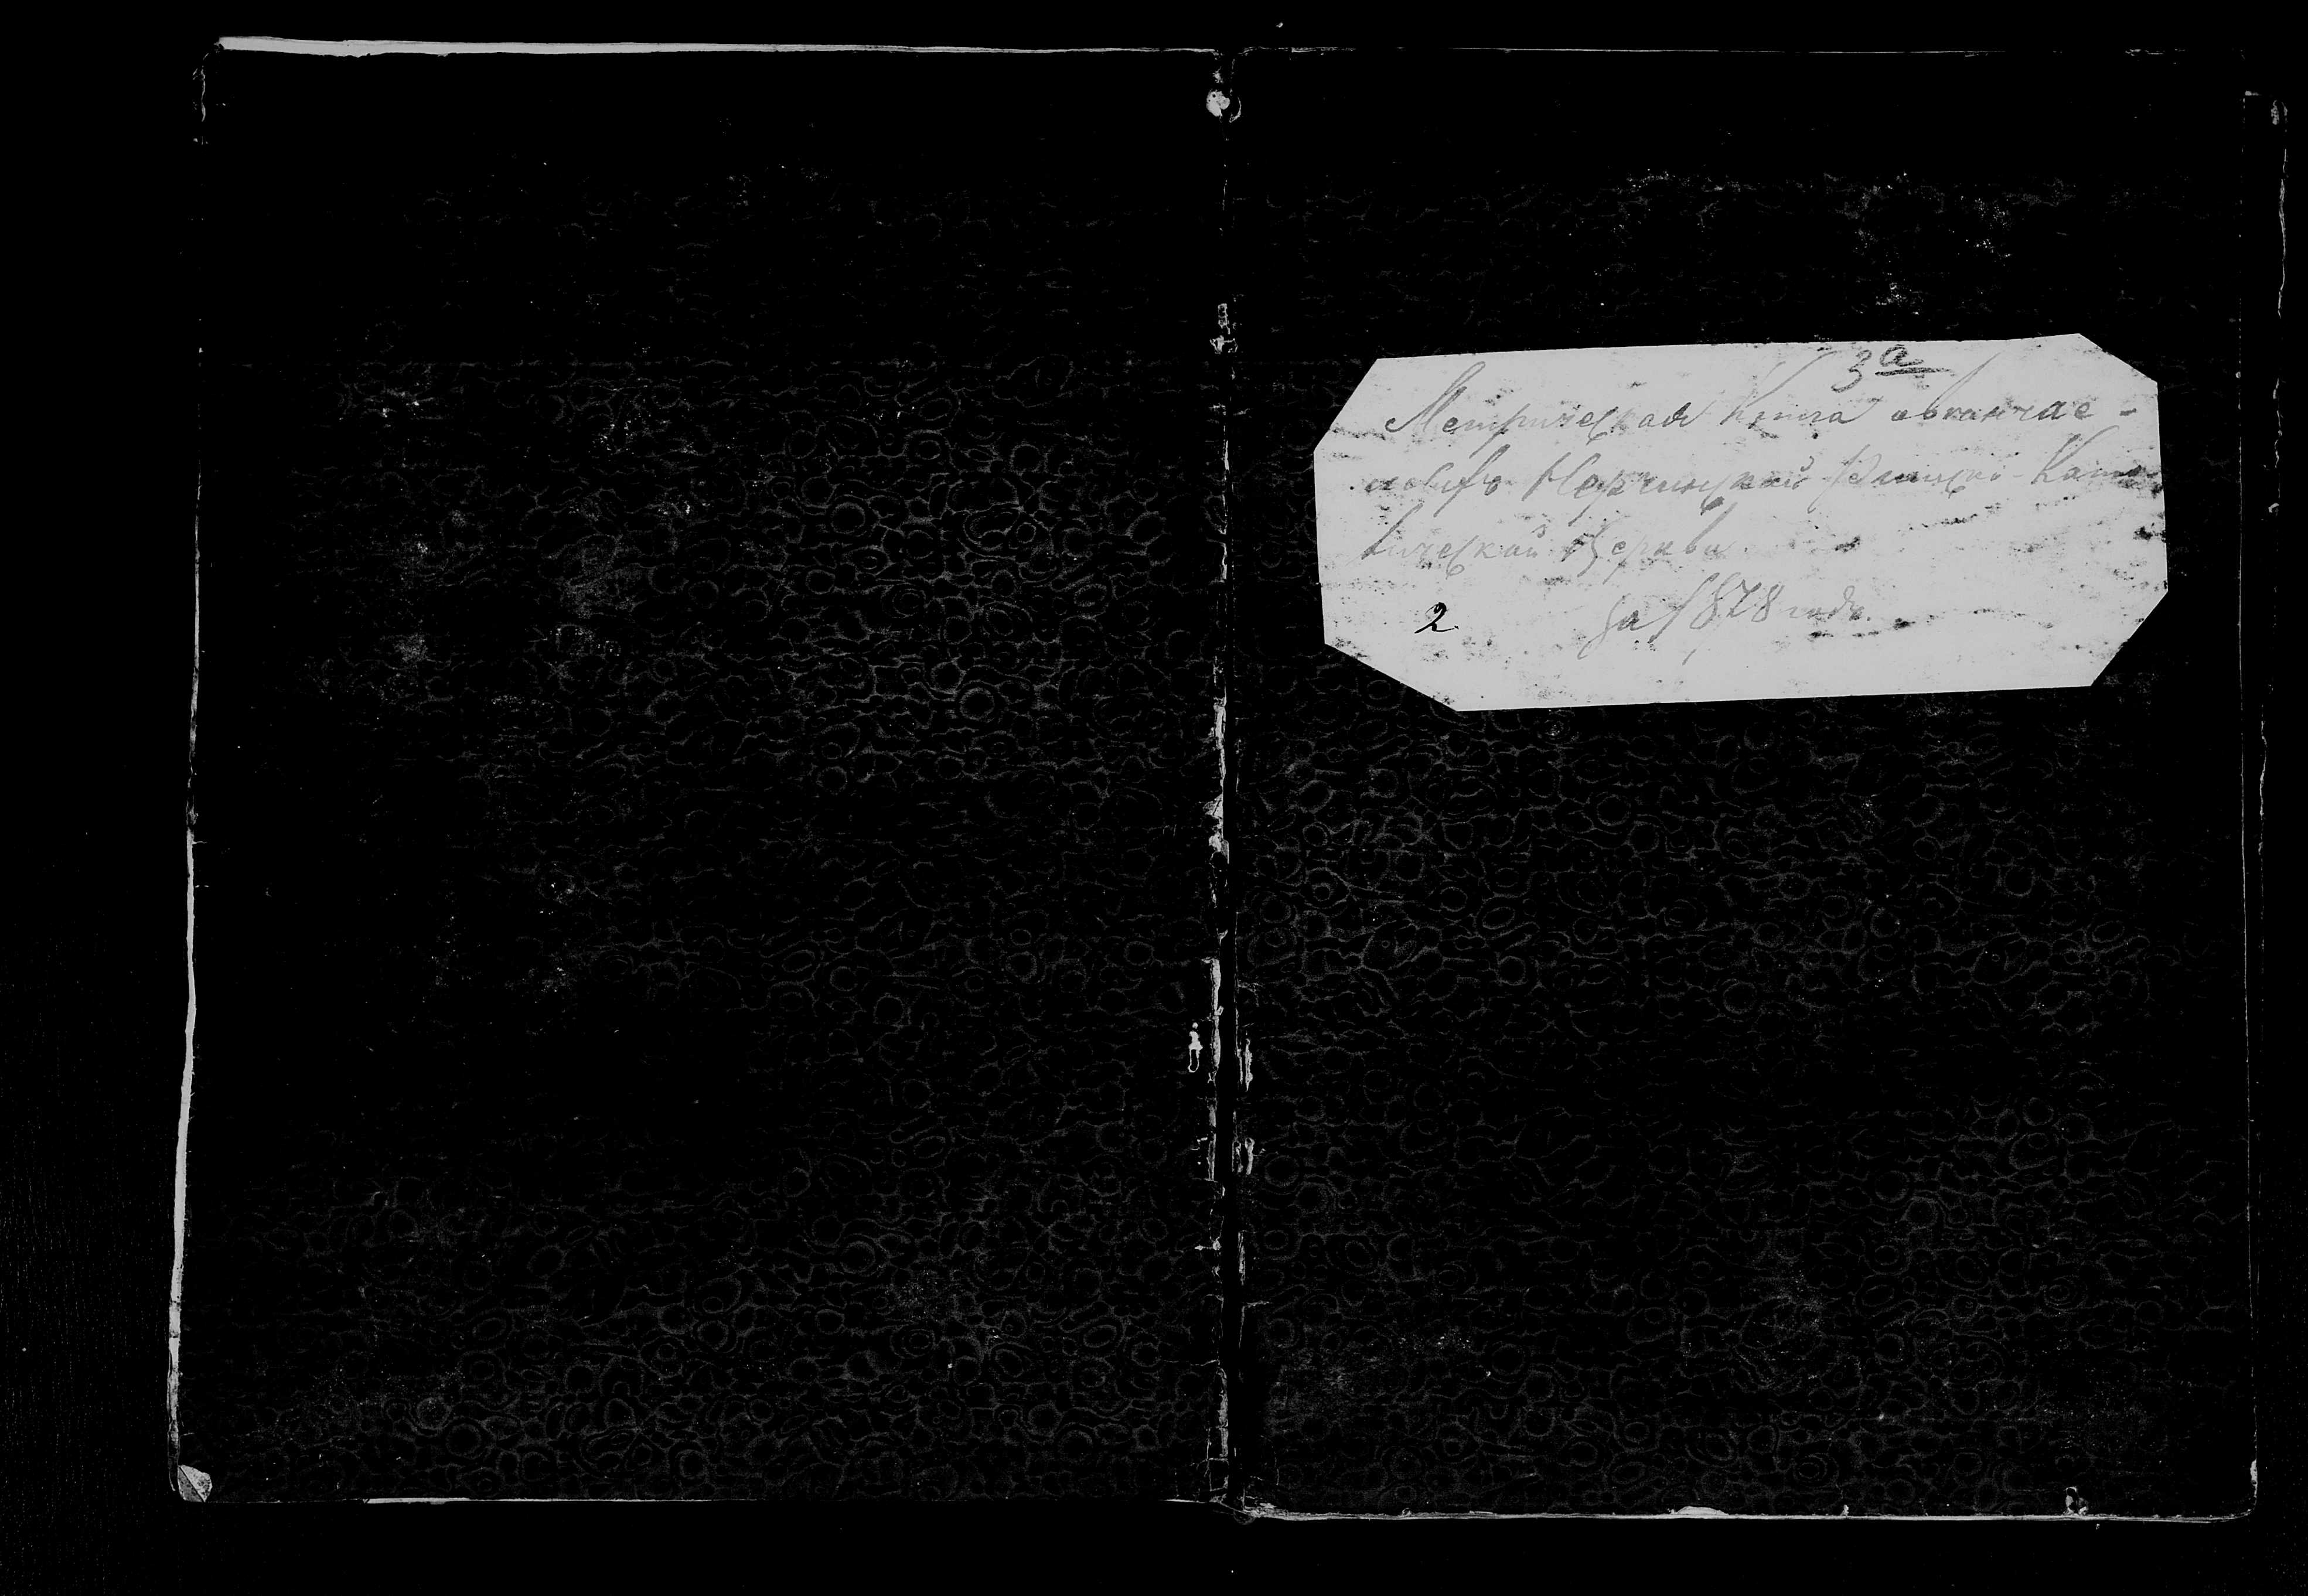 3а
Метрическая Книга авканчае-
мыхъ Нерчинской Римско-Като
лической Церкви.
2 За 1878 годъ.